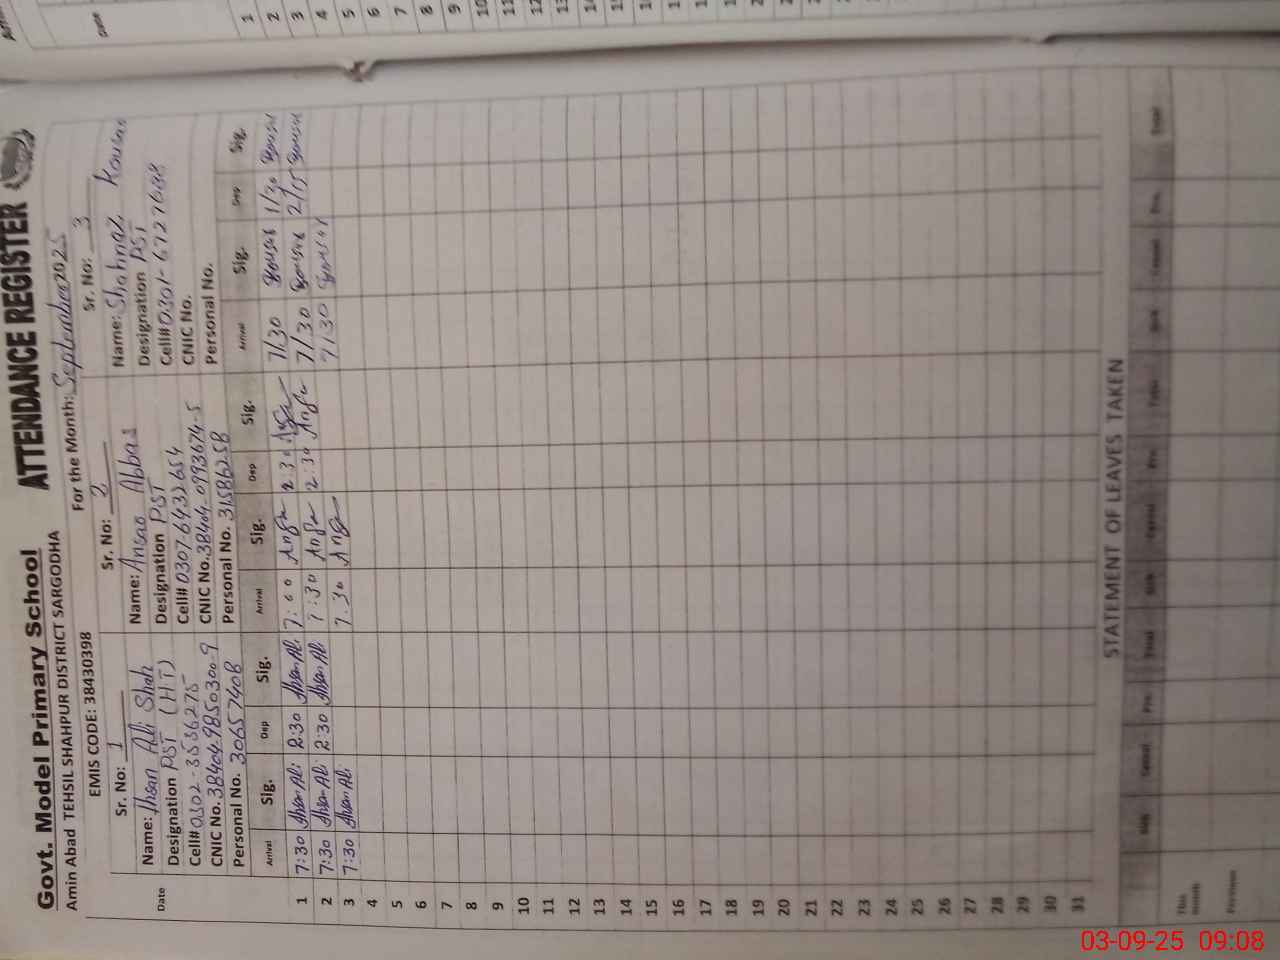 Govt. Model Primary School ATTENDANCE REGISTER
Amin Abad TEHSIL SHAHPUR DISTRICT SARGODHA For the Month: September 2025
EMIS CODE: 38430398
Sr. No: 1 Sr. No: 2 Sr. No: 3
Name: Ihsan Ali Shah Name: Ansar Abbas Name: Shahnaz Kousar
Designation PST (HT) Designation PST Designation PST
Cell# 0302-3536275 Cell# 0307-6432654 Cell# 0301-6727688
CNIC No. 38404-9850300-9 CNIC No. 38404-0993674-5 CNIC No.
Personal No. 30657408 Personal No. 31586258 Personal No.
Date Arrival Sig. Dep Sig. Arrival Sig. Dep Sig. Arrival Sig. Dep Sig.
1 7:30 Ahsan Ali 2:30 Ahsan Ali 7:00 2:30 7/30 Kousar 1/30 Kousar
2 7:30 Ahsan Ali 2:30 Ahsan Ali 7:30 2:30 7/30 Kousar 2/15 Kousar
3 7:30 Ahsan Ali 7.30 7/30 Kousar
4
5
6
7
8
9
10
11
12
13
14
15
16
17
18
19
20
21
22
23
24
25
26
27
28
29
30
31
STATEMENT OF LEAVES TAKEN
This month
Previous
03-09-25 09:08